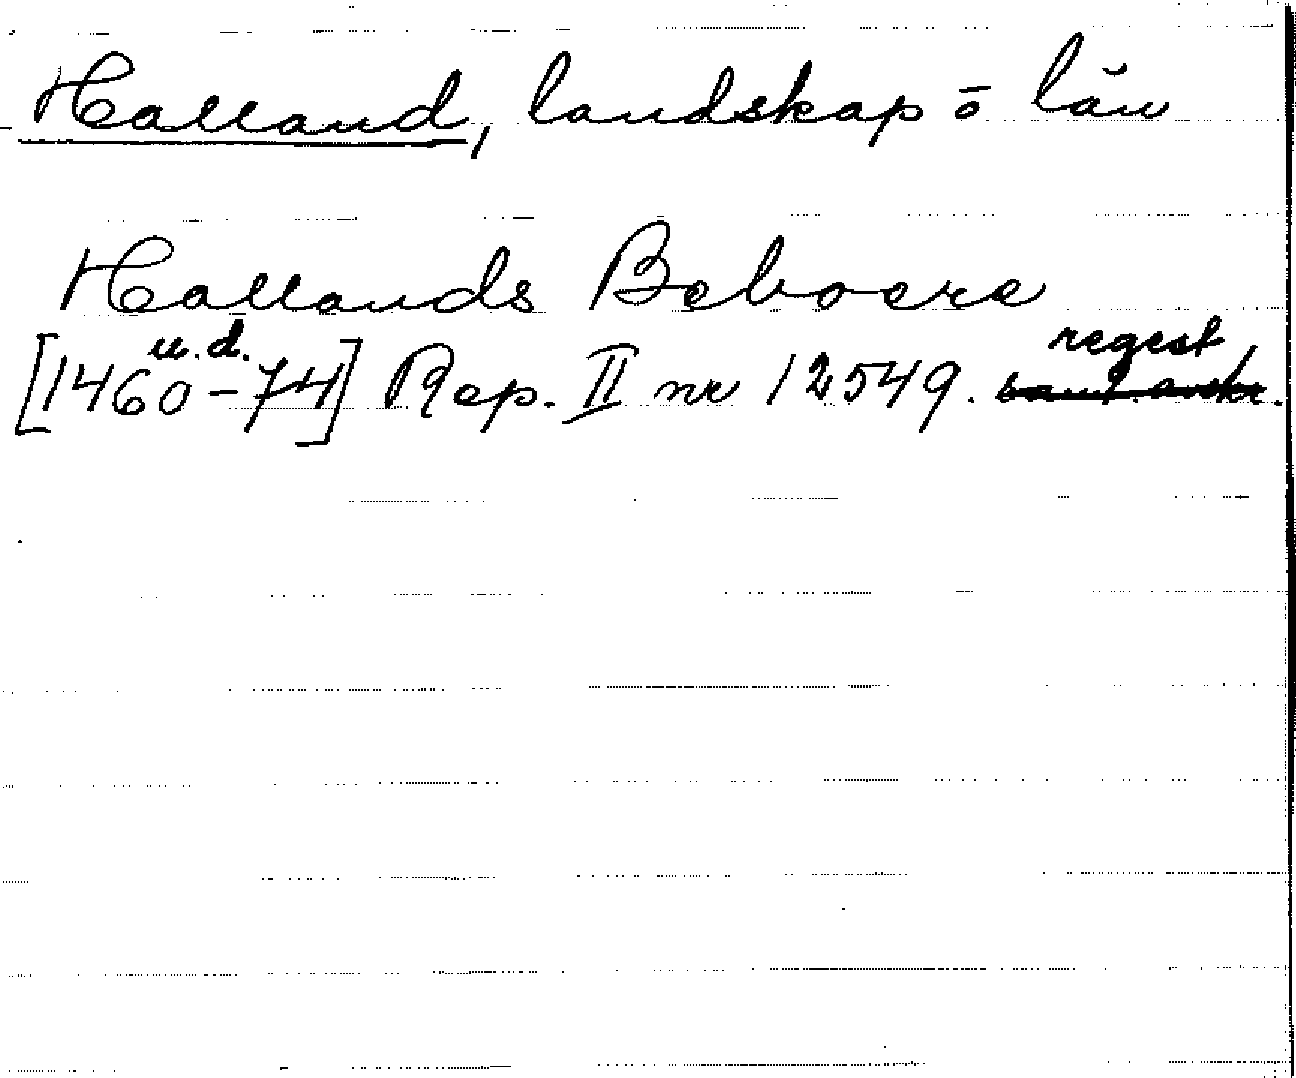 Halland, landskap ō län
Hallands Beboere
u.d. regest
[1460-74] Rep. II nr 12549.